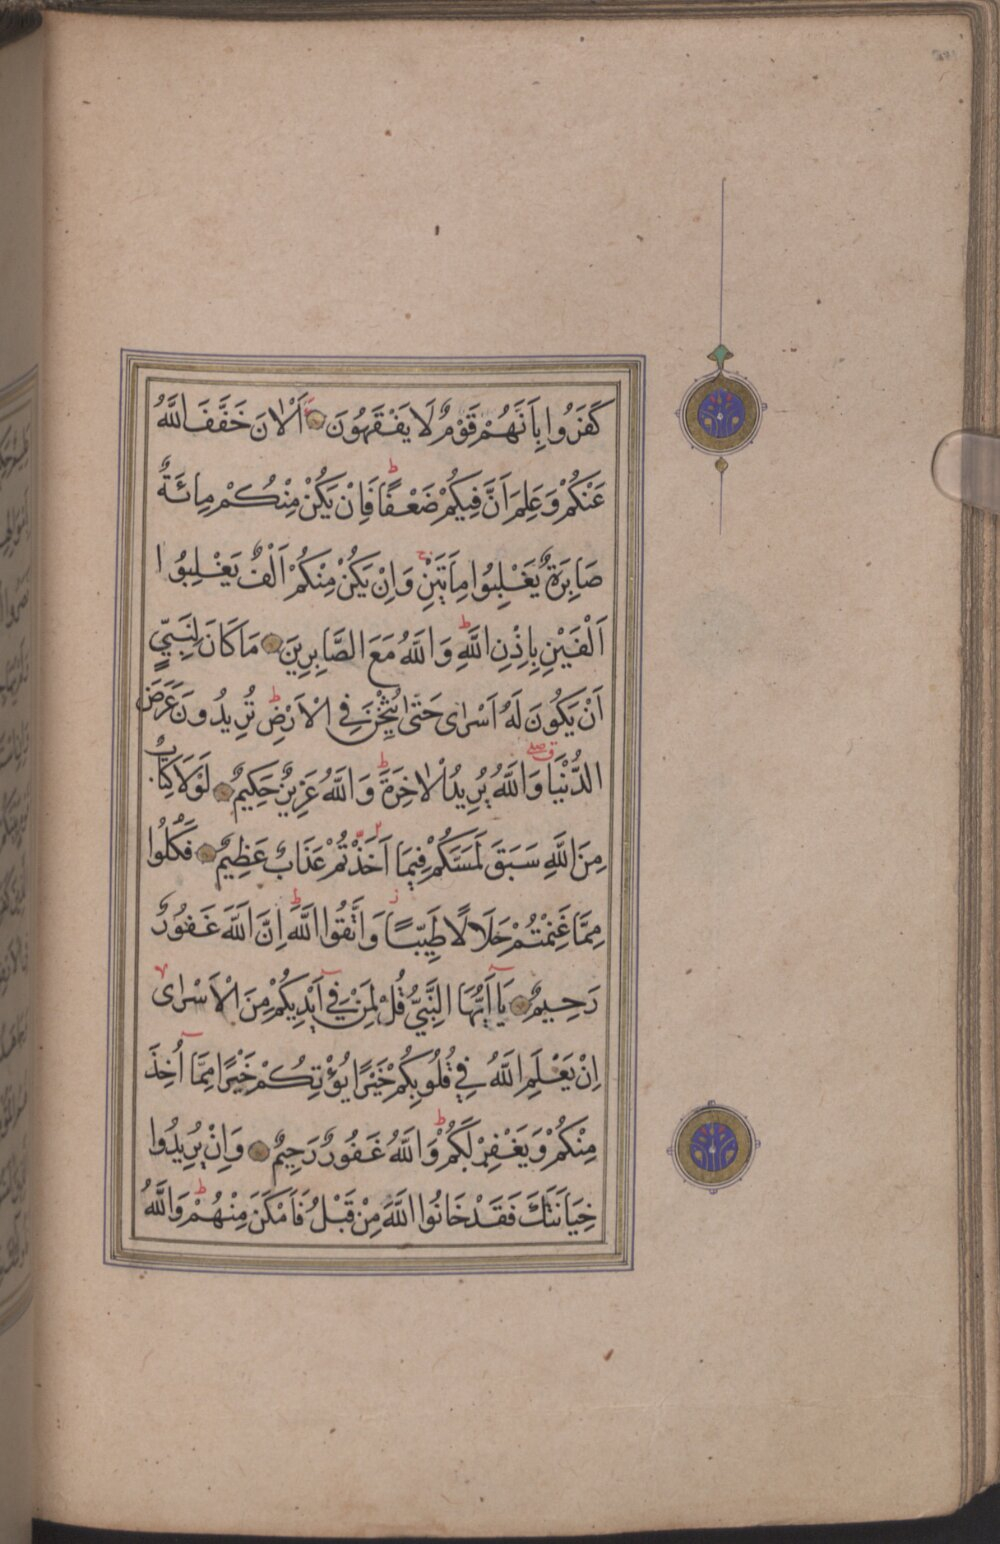 كَفَرُوا بِاَنَّهُمْ قَوْمٌ لَا يَفْقَهُونَ اَلْاٰنَ خَفَّفَ اللّٰهُ
عَنْكُمْ وَعَلِمَ اَنَّ فِيكُمْ ضَعْفًا فَاِنْ يَكُنْ مِنْكُمْ مِائَةٌ
صَابِرَةٌ يَغْلِبُوا مِاَتَيْنِ وَاِنْ يَكُنْ مِنْكُمْ اَلْفٌ يَغْلِبُوا
اَلْفَيْنِ بِاِذْنِ اللّٰهِ وَاللّٰهُ مَعَ الصَّابِرِينَ مَا كَانَ لِنَبِيٍّ
اَنْ يَكُونَ لَهُ اَسْرٰى حَتّٰى يُثْخِنَ فِي الْاَرْضِ تُرِيدُونَ عَرَضَ
الدُّنْيَا وَاللّٰهُ يُرِيدُ الْاٰخِرَةَ وَاللّٰهُ عَزِيزٌ حَكِيمٌ لَوْلَا كِتَابٌ
مِنَ اللّٰهِ سَبَقَ لَمَسَّكُمْ فِيمَا اَخَذْتُمْ عَذَابٌ عَظِيمٌ فَكُلُوا
مِمَّا غَنِمْتُمْ حَلَالًا طَيِّبًا وَاتَّقُوا اللّٰهَ اِنَّ اللّٰهَ غَفُورٌ
رَحِيمٌ يَا اَيُّهَا النَّبِيُّ قُلْ لِمَنْ فِي اَيْدِيكُمْ مِنَ الْاَسْرٰى
اِنْ يَعْلَمِ اللّٰهُ فِي قُلُوبِكُمْ خَيْرًا يُؤْتِكُمْ خَيْرًا مِمَّا اُخِذَ
مِنْكُمْ وَيَغْفِرْ لَكُمْ وَاللّٰهُ غَفُورٌ رَحِيمٌ وَاِنْ يُرِيدُوا
خِيَانَتَكَ فَقَدْ خَانُوا اللّٰهَ مِنْ قَبْلُ فَاَمْكَنَ مِنْهُمْ وَاللّٰهُ